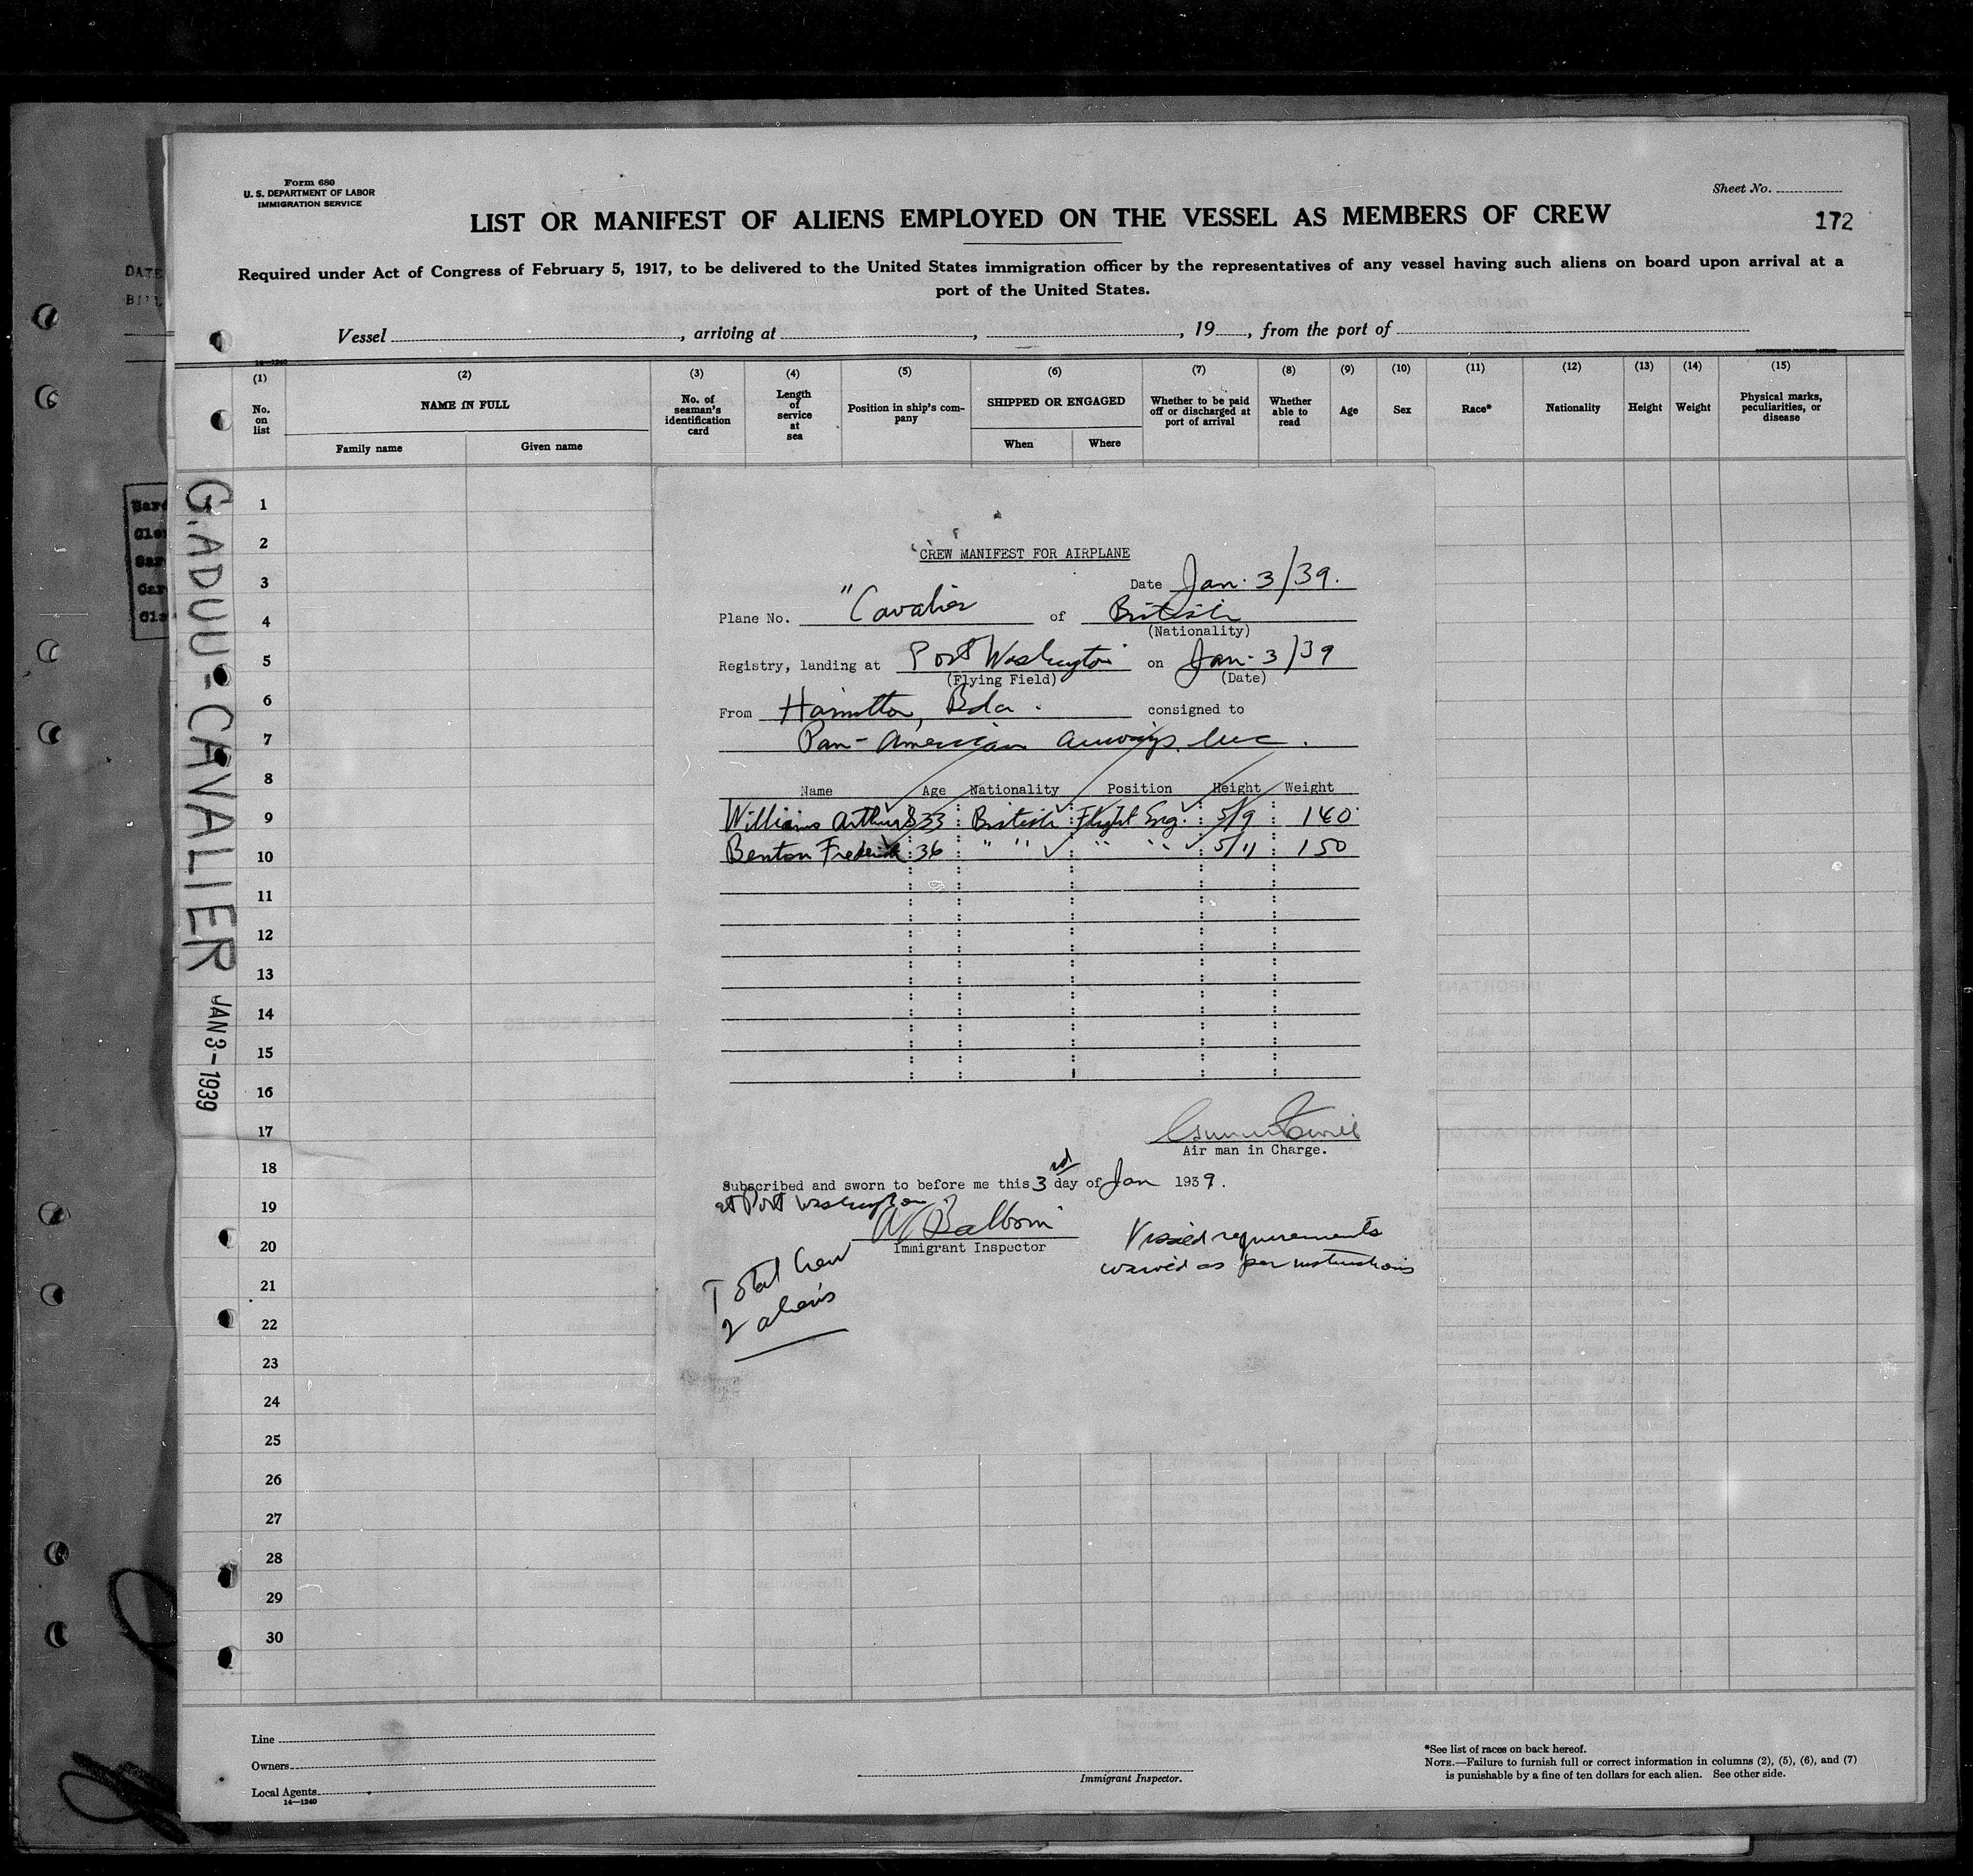 Form 680
U. S. DEPARTMENT OF LABOR
IMMIGRATION SERVICE
Sheet No.
LIST OR MANIFEST OF ALIENS EMPLOYED ON THE VESSEL AS MEMBERS OF CREW
172
Required under Act of Congress of February 5, 1917, to be delivered to the United States immigration officer by the representatives of any vessel having such aliens on board upon arrival at a
port of the United States.
Vessel , arriving at , , 19 , from the port of
14—1240
(1) (2) (3) (4) (5) (6) (7) (8) (9) (10) (11) (12) (13) (14) (15)
No. on list
NAME IN FULL
Family name Given name
No. of seaman's identification card
Length of service at sea
Position in ship's company
SHIPPED OR ENGAGED
When Where
Whether to be paid off or discharged at port of arrival
Whether able to read
Age
Sex
Race*
Nationality
Height
Weight
Physical marks, peculiarities, or disease
G.ADUU-CAVALIER JAN 3-1939
1
2
3
4
5
6
7
8
9
10
11
12
13
14
15
16
17
18
19
20
21
22
23
24
25
26
27
28
29
30
CREW MANIFEST FOR AIRPLANE
Date Jan. 3/39.
Plane No. "Cavalier of British
(Nationality)
Registry, landing at Port Washington on Jan. 3/39
(Flying Field) (Date)
From Hamilton, Bda. consigned to
Pan-American Airways Inc.
Name Age Nationality Position Height Weight
Williams Arthur S 33 British Flight Eng. 5/9 140
Benton Frederick 36 " " " " 5/11 150
Air man in Charge.
Subscribed and sworn to before me this 3rd day of Jan 1939.
at Port Washington
Immigrant Inspector
Visaed requirements
waived as per instructions
Total Crew
2 aliens
Line
Owners
Local Agents
14—1240
Immigrant Inspector.
*See list of races on back hereof.
NOTE.—Failure to furnish full or correct information in columns (2), (5), (6), and (7)
is punishable by a fine of ten dollars for each alien. See other side.